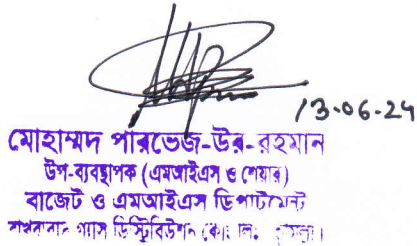 13-06-24
মোহাম্মদ পারভেজ-উর-রহমান
উপ-ব্যবস্থাপক (এমআইএস ও শেয়ার)
বাজেট ও এমআইএস ডিপার্টমেন্ট
গ্যাস ডিস্ট্রিবিউশন কোং লিঃ